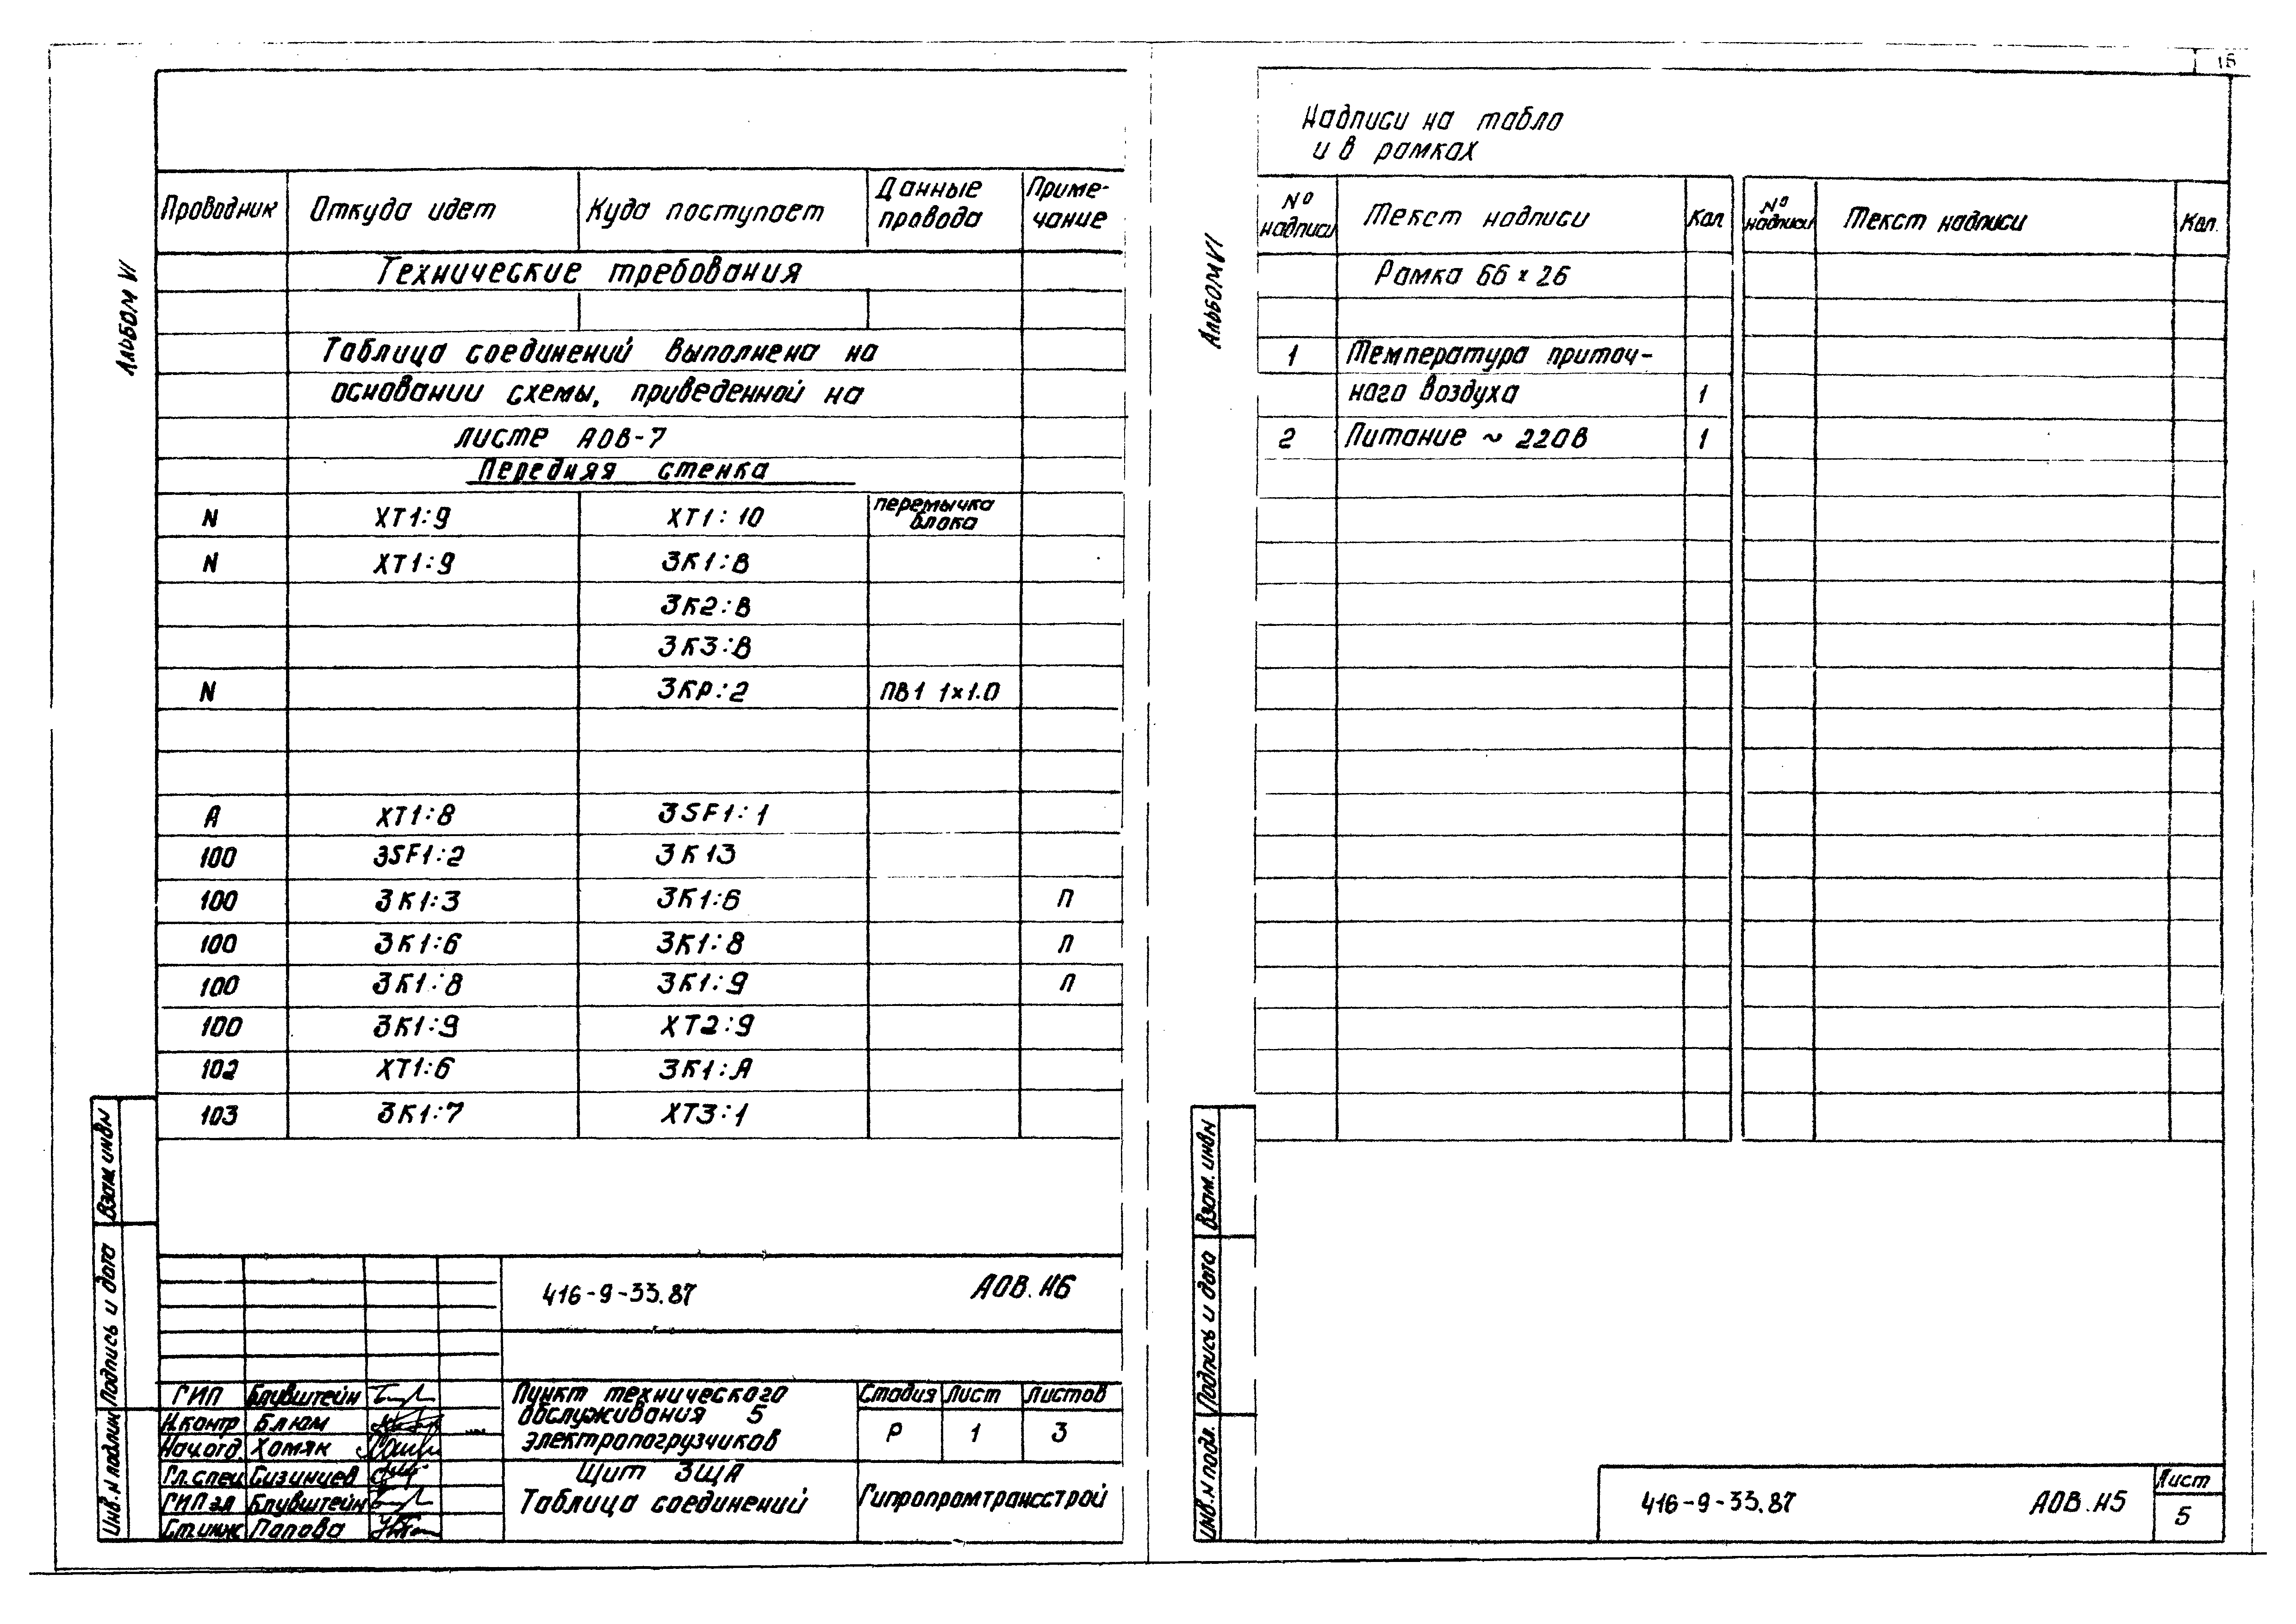 Альбом VI
Проводник Откуда идет Куда поступает Данные провода Приме-чание
Технические требования
Таблица соединений выполнена на
основании схемы, приведенной на
листе АОВ-7
Передняя стенка
N XT1:9 XT1:10 перемычка блока
N XT1:9 3К1:В
3К2:В
3К3:В
N 3КР:2 ПВ1 1×1.0
А XT1:8 3SF1:1
100 3SF1:2 3К13
100 3К1:3 3К1:6 П
100 3К1:6 3К1:8 П
100 3К1:8 3К1:9 П
100 3К1:9 XT2:9
102 XT1:6 3К1:А
103 3К1:7 XT3:1
Взам. инв N
Подпись и дата
Инв. N подлин
416-9-33.87 АОВ.Н6
ГИП Блувштейн
Н.контр Блюм
Нач.отд. Хомяк
Гл.спец Сизинцев
ГИП эл Блувштейн
Ст.инж Папова
Пункт технического
обслуживания 5
электропогрузчиков
Стадия Лист Листов
Р 1 3
Щит 3ЩА
Таблица соединений
Гипропромтрансстрой
15
Альбом VI
Надписи на табло
и в рамках
N° надписи Текст надписи Кол N° надписи Текст надписи Кол.
Рамка 66 × 26
1 Температура приточ-
ного воздуха 1
2 Питание ~ 220В 1
Взам. инв N
Подпись и дата
Инв. N подл.
416-9-33.87 АОВ.Н5
Лист
5